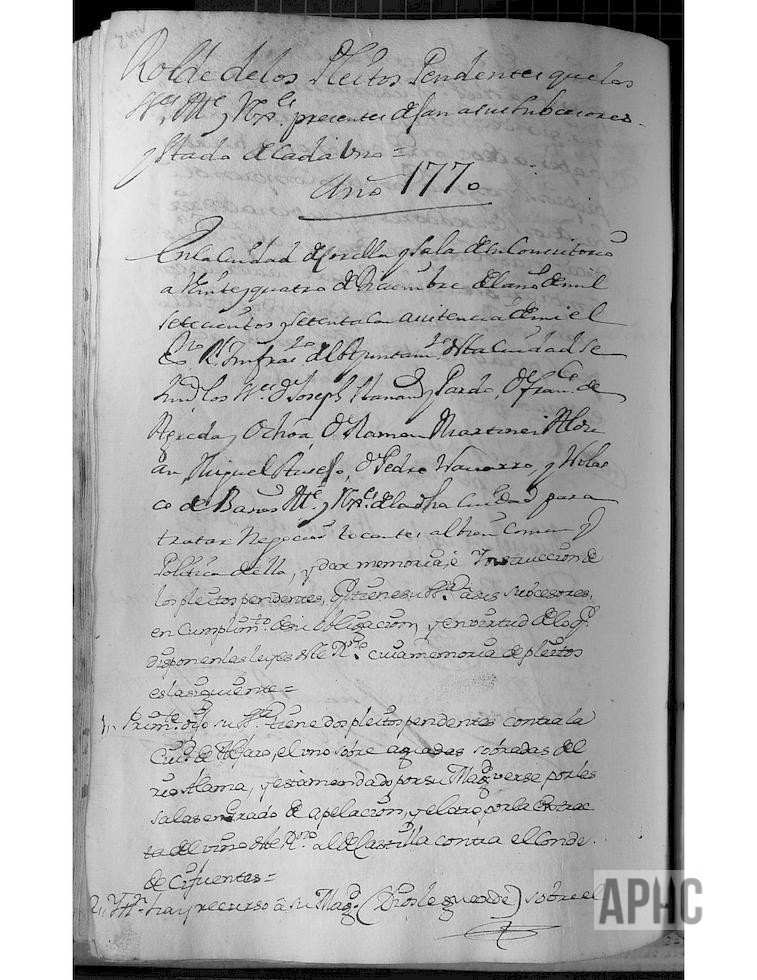 Rolde de los Pleitos Pendentes que los
SSres. Alle y Rexes. presentes dejan a sus subcesores
y stado de cada uno =
Año 1770
En la Ciudad de Corella y Sala de su Consistorio
a veinte y quatro de Diciembre del año de mil
setecientos y setenta con asistencia de mi el
Es.no R.l Infrascº. del Ayuntam.to desta Ciudad se
los SSres. D.n Joseph y Pardo, D.n Fran.co de
Agreda y Ochoa D.n Ramon Martinez
Miguel D.n Pedro Navarro, y
co de Baños Alle. y Rexes. de la dha Ciudad para
tratar Negocios tocantes al bien Comun y
Politica della, y dar memoria, é Instruccion de
los pleitos pendentes, q.e tiene su S.ria à sus subcesores,
en Cumplim.to de su obligacion, y en virtud de lo q.e
disponen las leyes deste R.no cuia memoria de pleitos
es la siguiente =
1,, Prim.te dijo su S.ria tiene dos pleitos pendentes contra la
Ciud. de Alfaro, el uno sobre aguadas sobradas del
rio Alama, y está mandado por su Mag.d verse por las
salas en grado de apelacion, y el otro, por la extrac
ta del vino deste R.no al de Castilla contra el Conde
de Cifuentes =
2,, Ytt.n hay recurso à su Mag.d (Dios le guarde) sobre el
APHC